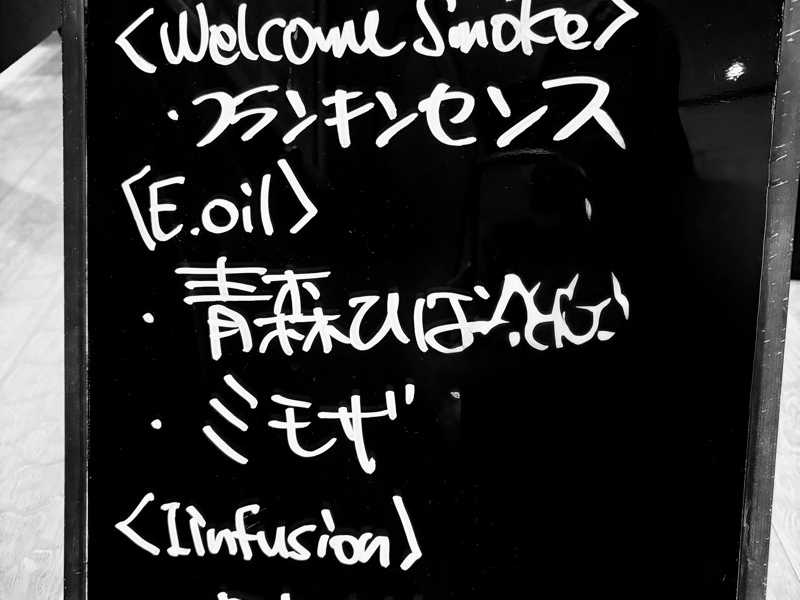 <Welcome Smoke>
・フランキンセンス
[E.oil>
・青森ひば
・ミモザ
<Iinfusion>